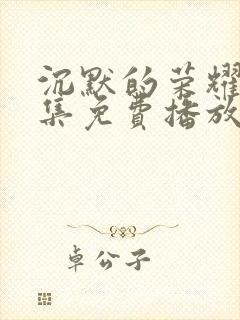 沉默的荣耀
集免费播放
卓公子